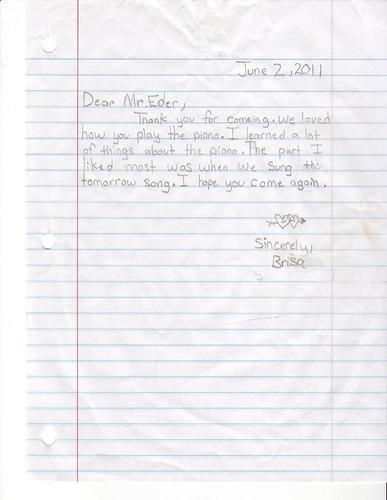 June 2, 2011
Dear Mr. Eder,
Thank you for comeing. We loved
how you play the piono. I learned a lot
of things about the piono. The part I
liked most was when we sung the
tomorrow song. I hope you come again.
Sincerely,
Brisa